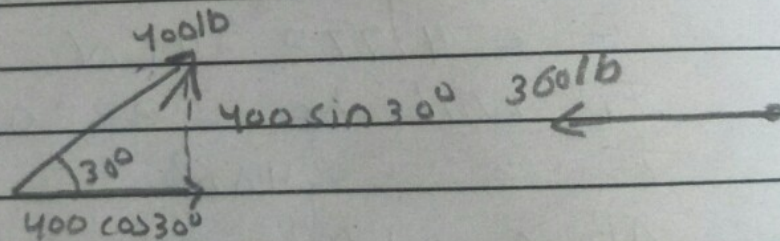 400lb
400 sin 30°
360lb
30°
400 cos30°